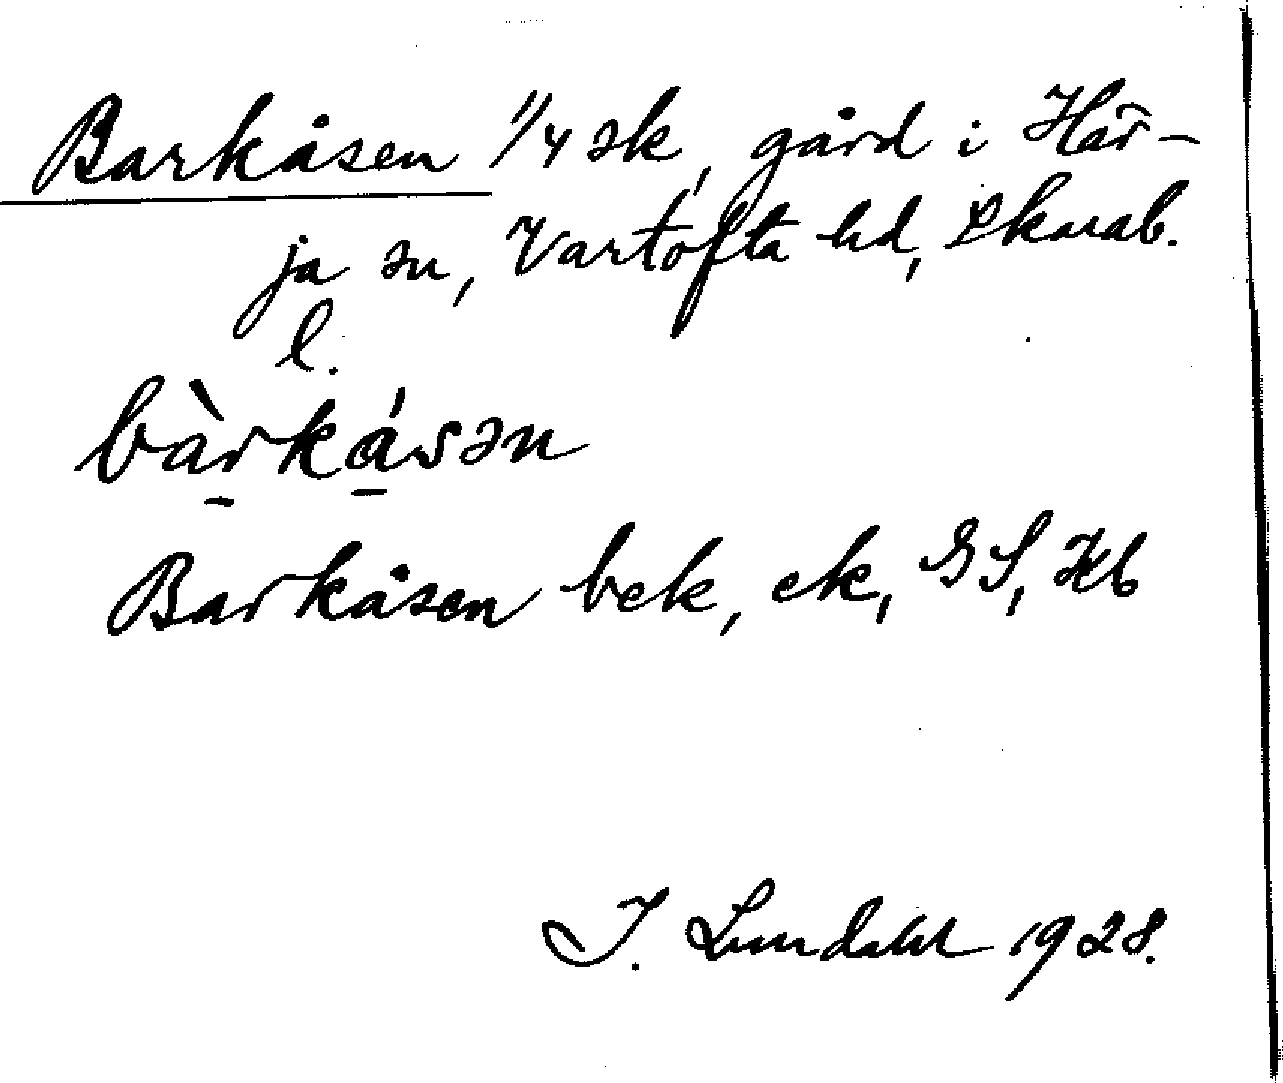 Barkåsen 1/4 sk, gård i Här-
ja sn, Vartofta hd, Skarab.
l.
bàrkásən
Barkåsen bek, ek, GS, Kb
I. Lundahl 1928.